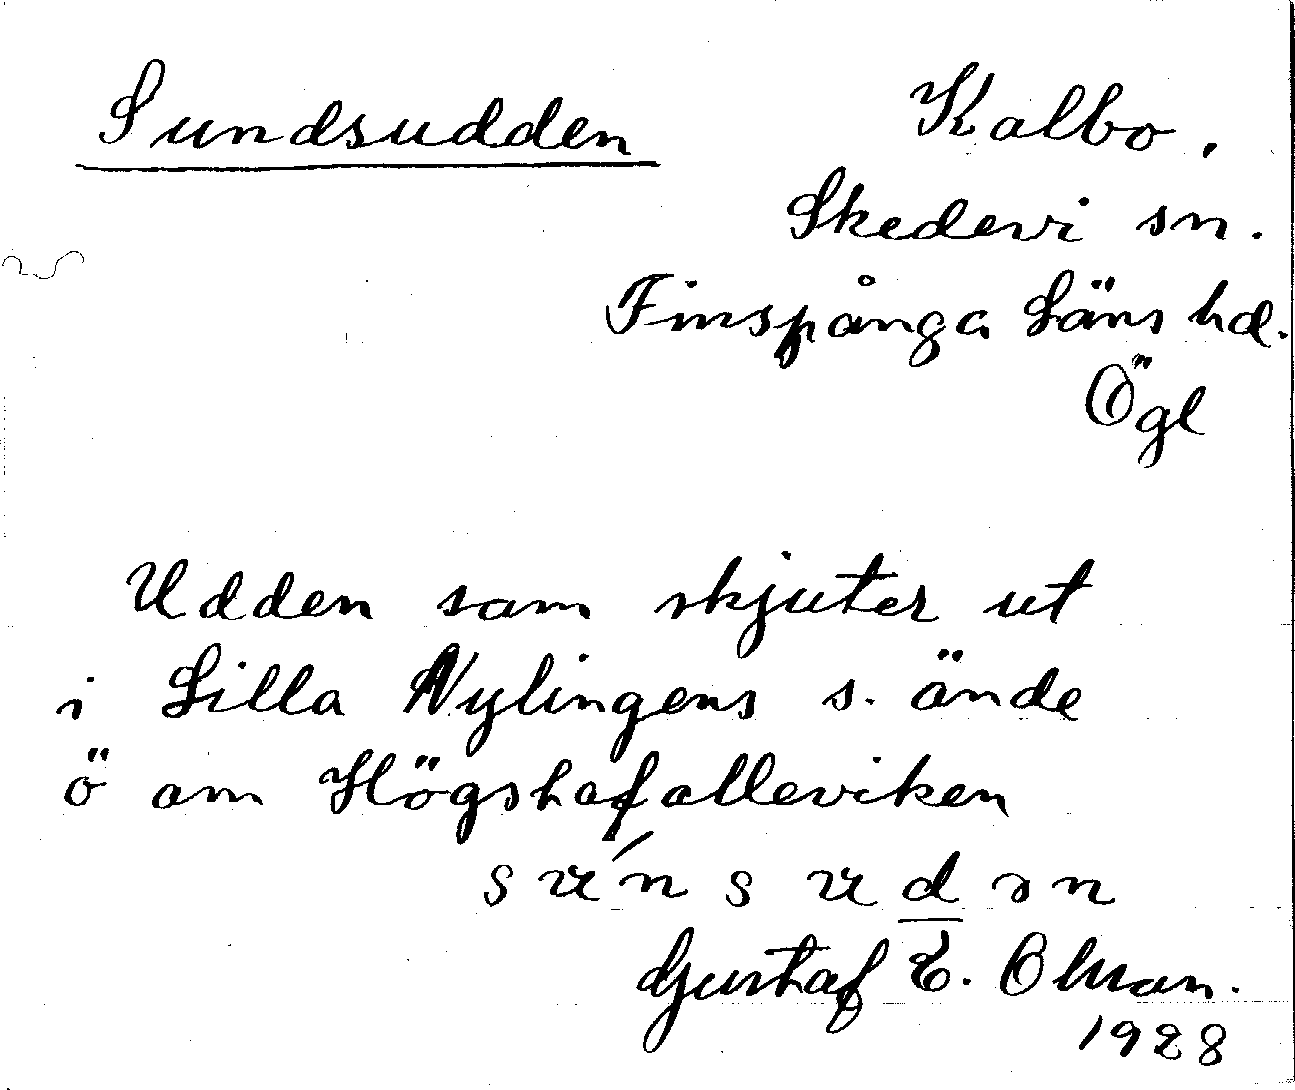 Sundsudden
Kalbo.
Skedevi sn.
Finspånga Läns hd.
Ögl
Udden som skjuter ut
i Lilla Nylingens s. ände
ö om Högshafalleviken
su´nsudən
Gustaf E. Olsson.
1928